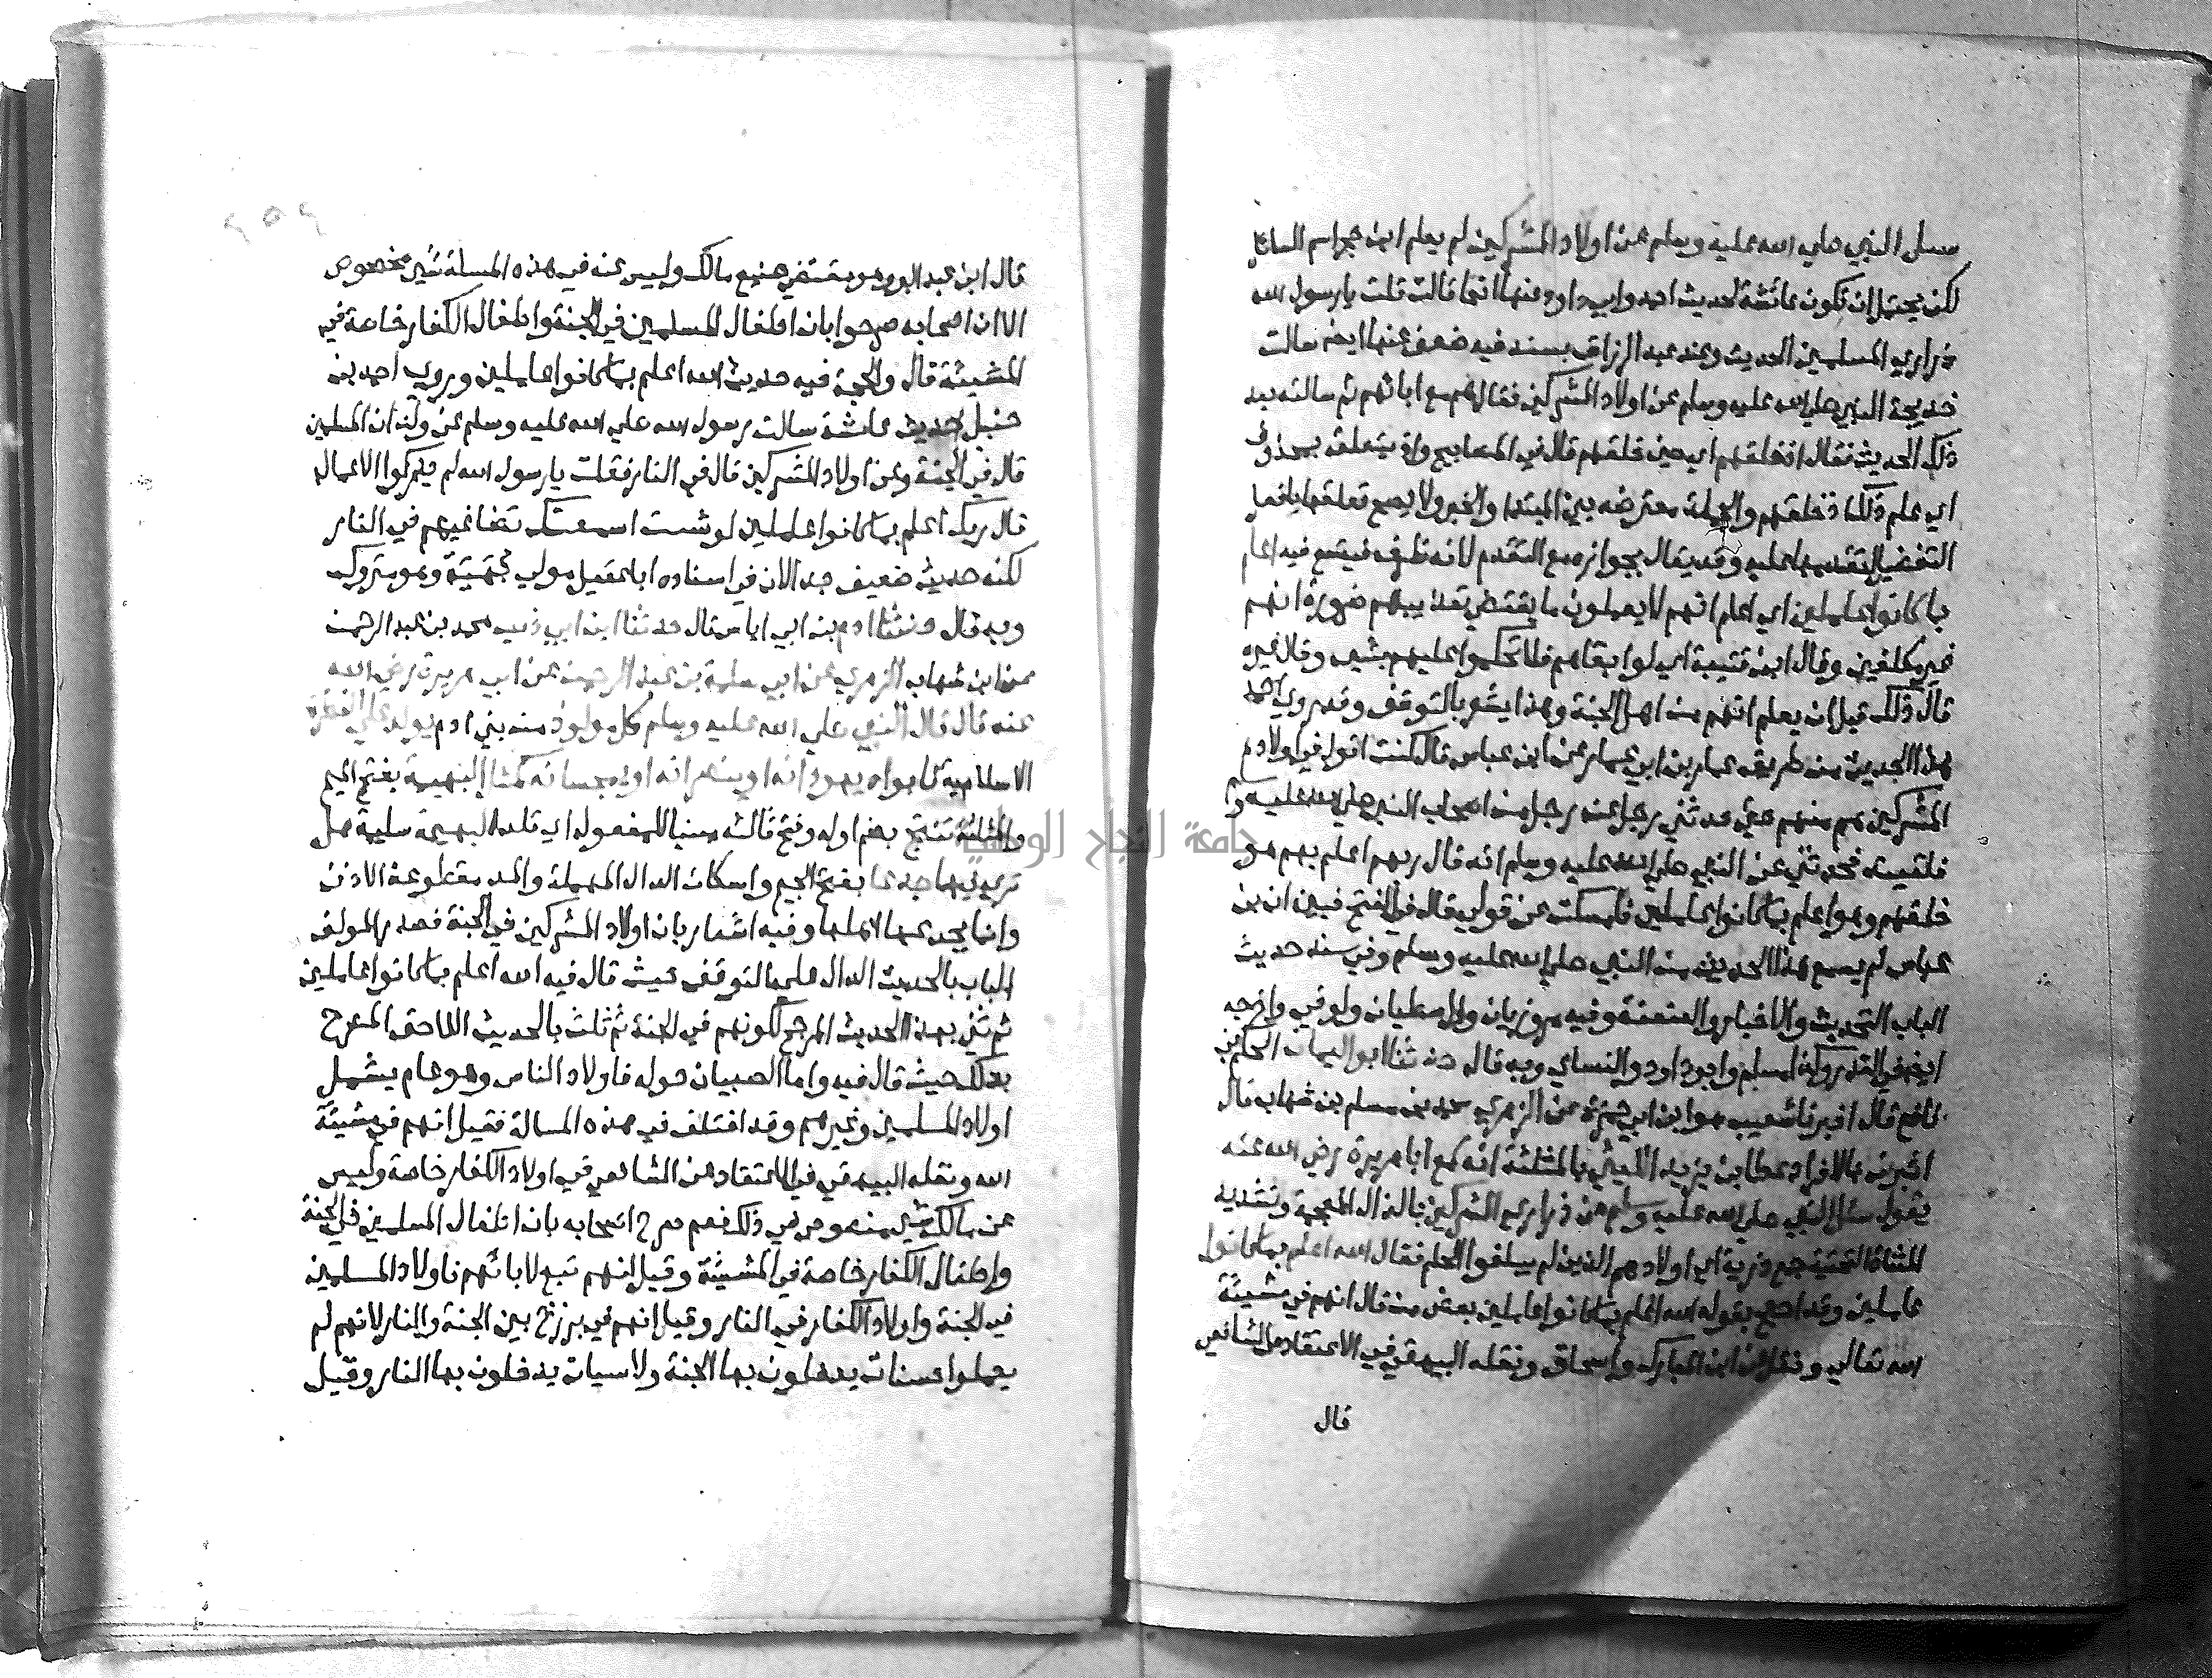 سئل النبي صلي الله عليه وسلم عن اولاد المشركين لم يعلم ابن حجر اسم السائل
لكن يحتمل ان تكون عائشة لحديث احمد وابي داود عنها انها قالت قلت يا رسول الله
ذراري المسلمين الحديث وعند عبد الرزاق بسند فيه ضعف عنها ايضا سالت
خديجة النبي صلي الله عليه وسلم عن اولاد المشركين فقال هم مع ابائهم ثم سالته بعد
ذلك الحديث فقال اذ خلقهم اي حين خلقهم قال في المصابيح واذ يتعلق بمحذوف
اي علم ذلك اذ خلقهم والجملة معترضة بين المبتدا والخبر ولا يصح تعلقها بافعل
التفضيل لتقدمها عليه وقد يقال بجوازه مع التقدم لانه ظرف فيتسع فيه اعلم
بما كانوا عاملين اي اعلم انهم لا يعملون ما يقتضي تعذيبهم ضرورة انهم
غير مكلفين وقال ابن قتيبة اي لو ابقاهم فلا تحكموا عليهم بشي وقال غيره
قال ذلك قبل ان يعلم انهم من اهل الجنة وهذا يشعر بالتوقف وقد روي احمد
هذا الحديث من طريق عمار بن ابي عمار عن ابن عباس قال كنت اقول في اولاد
المشركين هم منهم حتي حدثني رجل عنه رجل من اصحاب النبي صلي الله عليه و
فلقيته فحدثني عن النبي صلي الله عليه وسلم انه قال ربهم اعلم بهم هو
خلقهم وهو اعلم بما كانوا عاملين فامسكت عن قولي قال في الفتح فبين ان ابن
عباس لم يسمع هذا الحديث من النبي صلي الله عليه وسلم وفي سند حديث
الباب التحديث والاخبار والعنعنة وفيه مروزيان وواسطيان وكوفي واخرجه
ايضا في القدر وكذا مسلم وابو داود والنساي وبه قال حدثنا ابو اليمان الحكم بن
نافع قال اخبرنا شعيب هو ابن ابي حمزة عن الزهري محمد بن مسلم بن شهاب قال
اخبرني بالافراد عطا بن يزيد الليثي بالمثلثة انه سمع ابا هريرة رضي الله عنه
يقول سئل النبي صلي الله عليه وسلم عن ذراري المشركين بالذال المعجمة وتشديد
المثناة التحتية جمع ذرية اي اولادهم الذين لم يبلغوا الحلم فقال الله اعلم بما كانوا
عاملين وقد احتج بقوله الله اعلم بما كانوا عاملين بعض من قال انهم في مشيئة
الله تعالي ونقل عن ابن المبارك واسحاق ونقله البيهقي في الاعتقاد عن الشافعي
قال
قال ابن عبد البر وهو مقتضي صنيع مالك وليس عنه في هذه المسلة شي مخصوص
الا ان اصحابه صرحوا بان اطفال المسلمين في الجنة واطفال الكفار خاصة في
المشيئة قال والحجة فيه حديث الله اعلم بما كانوا عاملين وروي احمد بن
حنبل حديث عائشة سالت رسول الله صلي الله عليه وسلم عن ولدان المسلمين
قال في الجنة وعن اولاد المشركين قال في النار فقلت يا رسول الله لم يدركوا الاعمال
قال ربك اعلم بما كانوا عاملين لو شئت اسمعتك تضاغيهم في النار
لكنه حديث ضعيف جدا لان في اسناده ابا عقيل مولي بهية وهو متروك
وبه قال حدثنا ادم بن ابي اياس قال حدثنا ابن ابي ذئب محمد بن عبد الرحمن
عن ابن شهاب الزهري عن ابي سلمة بن عبد الرحمن عن ابي هريرة رضي الله
عنه قال قال النبي صلي الله عليه وسلم كل مولود من بني ادم يولد علي الفطرة
الاسلامية فابواه يهودانه او ينصرانه او يمجسانه كمثل البهيمة بفتح الميم
والمثلثة تنتج بضم اوله وفتح ثالثه مبنيا للمفعول اي تلد البهيمة سليمة هل
تري فيها جدعا بفتح الجيم واسكان الدال المهملة والمد مقطوعة الاذن
وانما يجدعها اهلها وفيه اشعار بان اولاد المشركين في الجنة فصدر المولف
الباب بالحديث الدال علي التوقف حيث قال فيه الله اعلم بما كانوا عاملين
ثم ثني بهذا الحديث المرجح لكونهم في الجنة ثم ثلث بالحديث اللاحق المصرح
بذلك حيث قال فيه واما الصبيان حوله فاولاد الناس وهو عام يشمل
اولاد المسلمين وغيرهم وقد اختلف في هذه المسالة فقيل انهم في مشيئة
الله ونقله البيهقي في الاعتقاد عن الشافعي في اولاد الكفار خاصة وليس
عن مالك شي منصوص في ذلك نعم صرح اصحابه بان اطفال المسلمين في الجنة
واطفال الكفار خاصة في المشيئة وقيل انهم تبع لابائهم فاولاد المسلمين
في الجنة واولاد الكفار في النار وقيل انهم في برزخ بين الجنة والنار لانهم لم
يعملوا حسنات يدخلون بها الجنة ولا سيات يدخلون بها النار وقيل
جامعة النجاح الوطنية